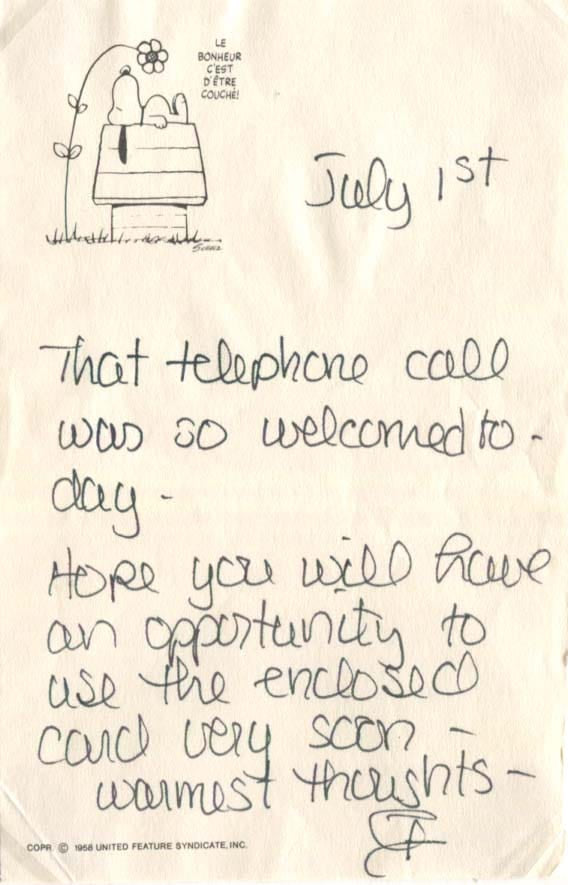 LE
BONHEUR
C'EST
D'ÊTRE
COUCHÉ!
SCHULZ
July 1st
That telephone call
was so welcomed to-
day -
Hope you will have
an opportunity to
use the enclosed
card very soon -
warmest thoughts -
COPR. © 1958 UNITED FEATURE SYNDICATE, INC.